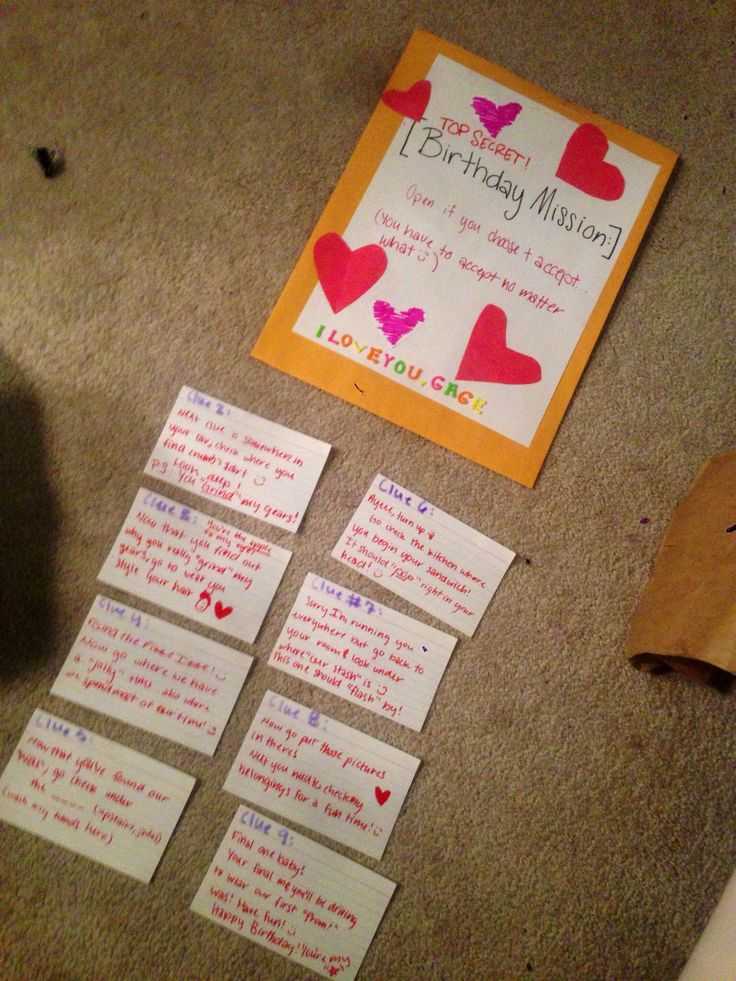 TOP SECRET!
[Birthday Mission:]
Open if you choose t accept...
(You have to accept no matter
what ☺)
I LOVE YOU, GAGE
Clue 2:
Next clue is somewhere in
your car, check where you
find
p.s. You "Grind" my gears!
Clue 3:
you're the apple
to my eye
Now that you find out
why you really "grind" my
gears, go to where you
style your hair
Clue 4:
Found the
Now go where we have
a "jolly" time also where
we spend most of our time! ☺
Clue 5:
Now that you've found our
go check under
the (upstairs, jada)
(wash my hands here)
Clue 6:
Ayee, turn up
Go check the kitchen where
you begin your sandwich!
It should "pop" right in your
head! ☺
Clue #7:
Sorry I'm running you
everywhere but go back to
your room & look under
where "our stash" is ☺
this one should "flash" by!
Clue 8:
Now go put those pictures
in there!
Next you need to check my
belongings for a fun time! ☺
Clue 9:
Final one baby!
Your final me you'll be driving
to where our first "Prom"
was! Have fun! ☺
Happy Birthday! You're my